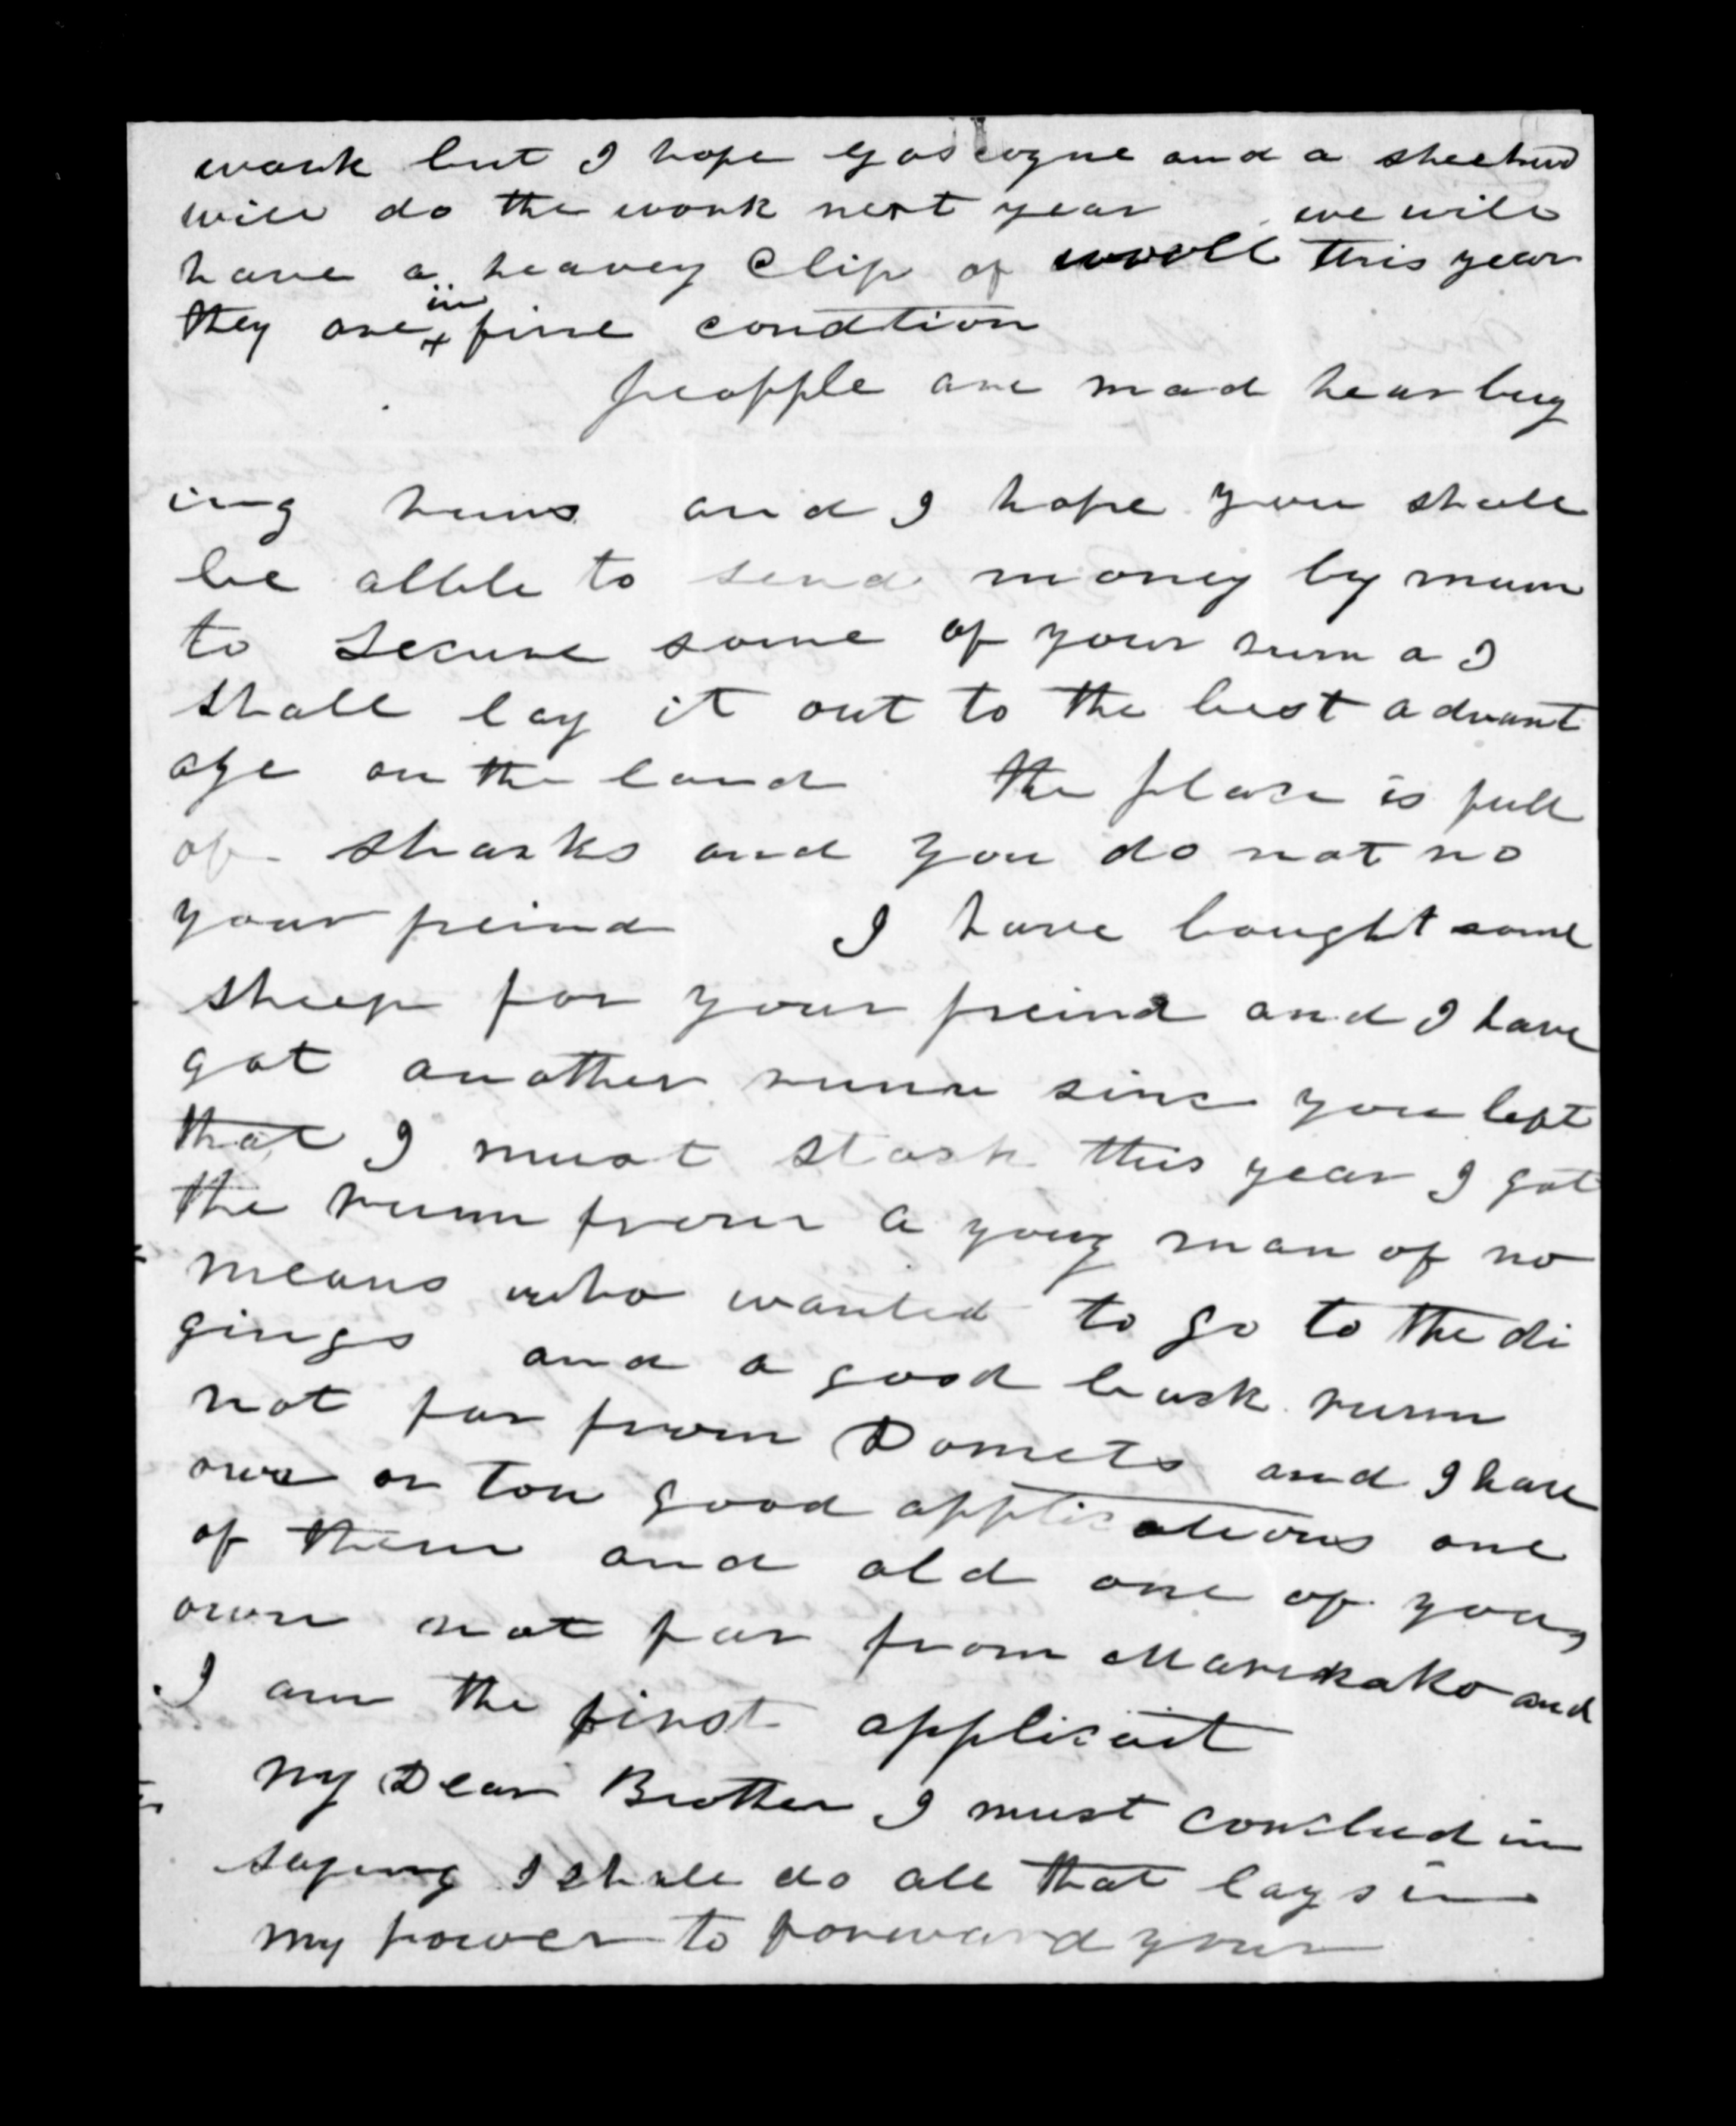 work but I hope Gascoyne and a sheehurd
will do the work next year we will
have a heavey Clip of wooll this year
they are in fine condtion
peopple are mad hear buy
ing runs and I hope you shall
be allble to send money by mum
to secure some of your runn a I
shall lay it out to the best advant
age on the land the place is full
of sharks and you do not no
your freind I have bought some
sheep for your freind and I have
got another runn sinc you left
that I must stock this year I got
the runn from a young man of no
means who wanted to go to the di
gings and a good back runn
not far from Domets and I have
one or tow good applications one
of them and old one of your
own not far from Manekako and
I am the first applicant
My Dear Brother I must conclud in
saying I shall do all that lays in
my power to forward your